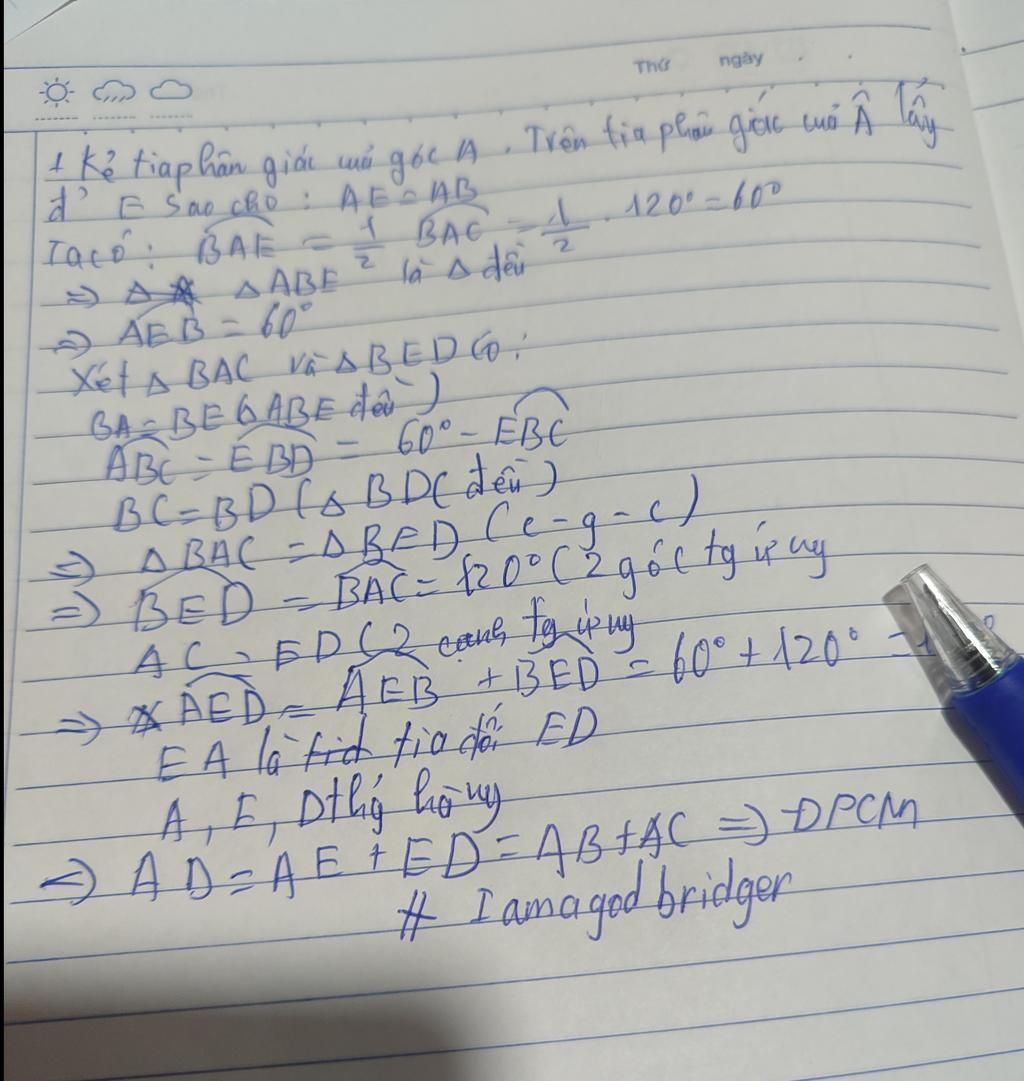 Thứ ngày
+ Kẻ tia phân giác của góc A. Trên tia phân giác của Â lấy
đ' E sao cho : AE = AB
Ta có : BAE = 1/2 BAC = 1/2 . 120° = 60°
=> Δ ΔABE là Δ đều
=> AEB = 60°
Xét Δ BAC và Δ BED có :
BA = BE (ΔABE đều)
ABC = EBD = 60° - EBC
BC = BD (Δ BDC đều)
=> Δ BAC = Δ BED (c-g-c)
=> BED = BAC = 120° (2 góc tg ứng
AC = ED (2 cạnh tg ứng
=> AED = AEB + BED = 60° + 120° =
EA là tia đối ED
A, E, D thg hàng
=> AD = AE + ED = AB + AC => ĐPCM
# I am a god bridger